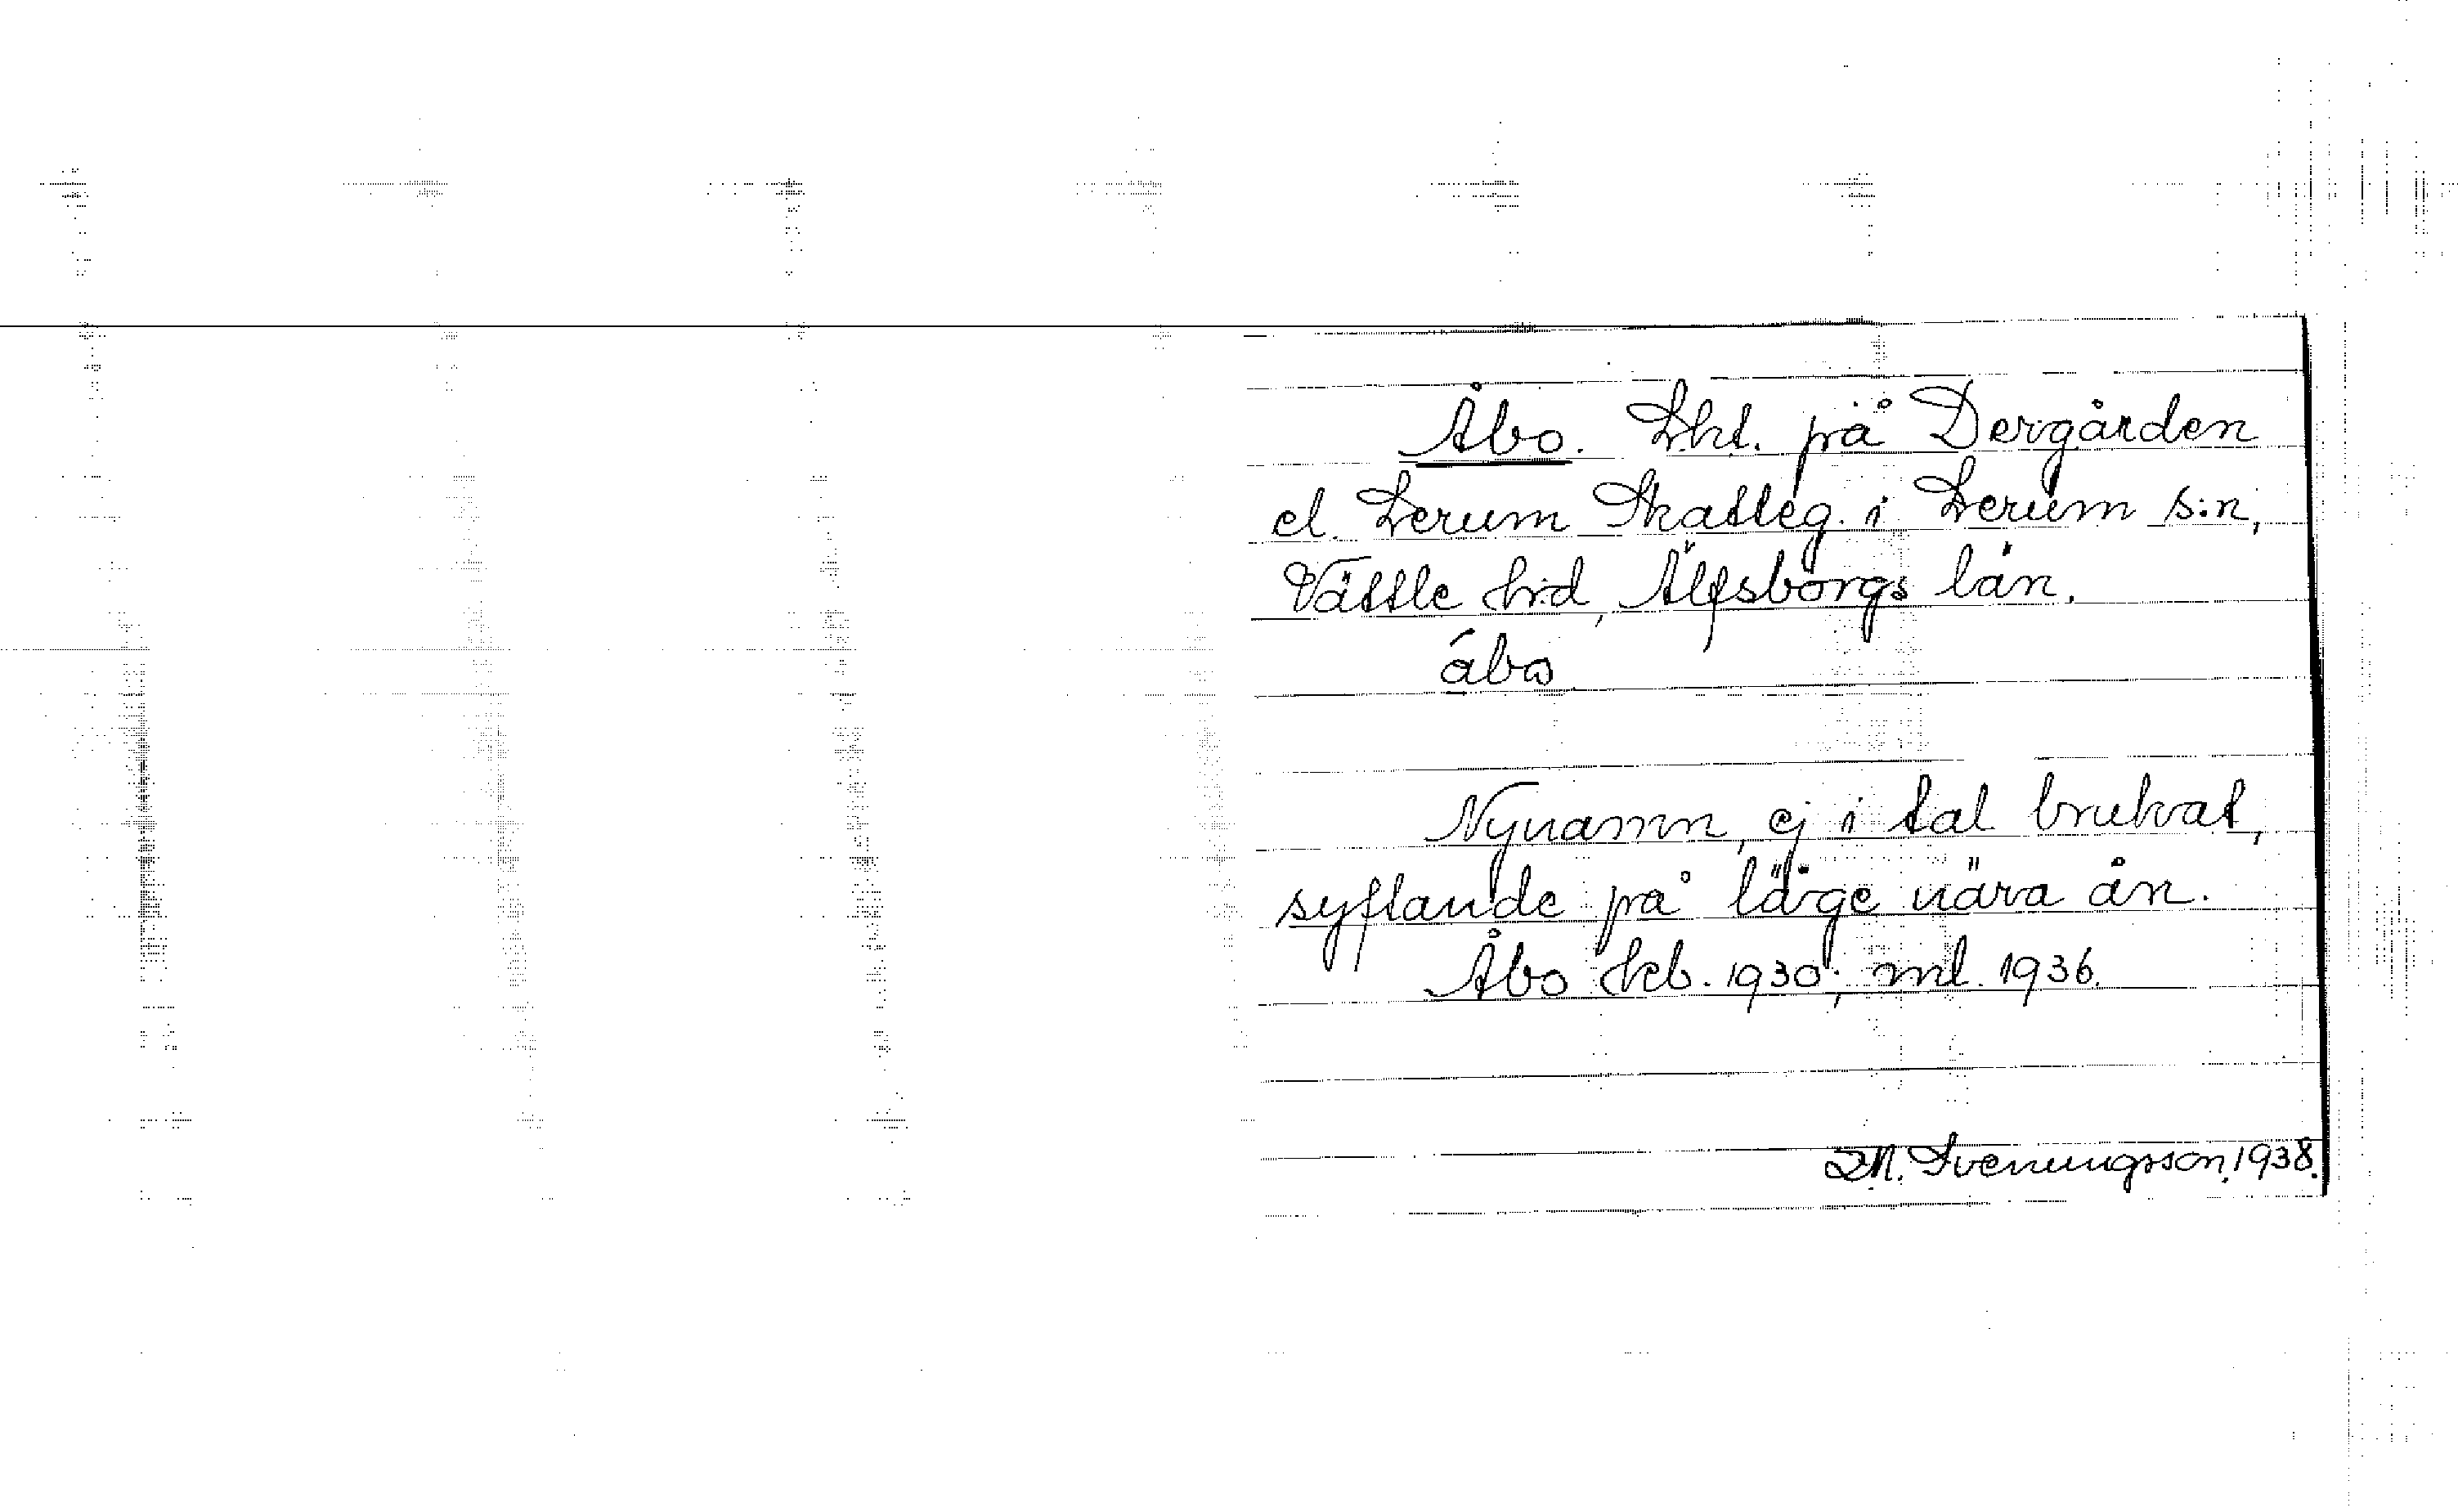 Åbo. Lht. på Dergården
el. Lerum Skatteg. i Lerum s:n,
Vättle hd, Älfsborgs län.
åbo
Nynamn, ej i tal brukat,
syftande på läge nära ån.
Åbo kb. 1930; ml. 1936.
Svenungsson, 1938.